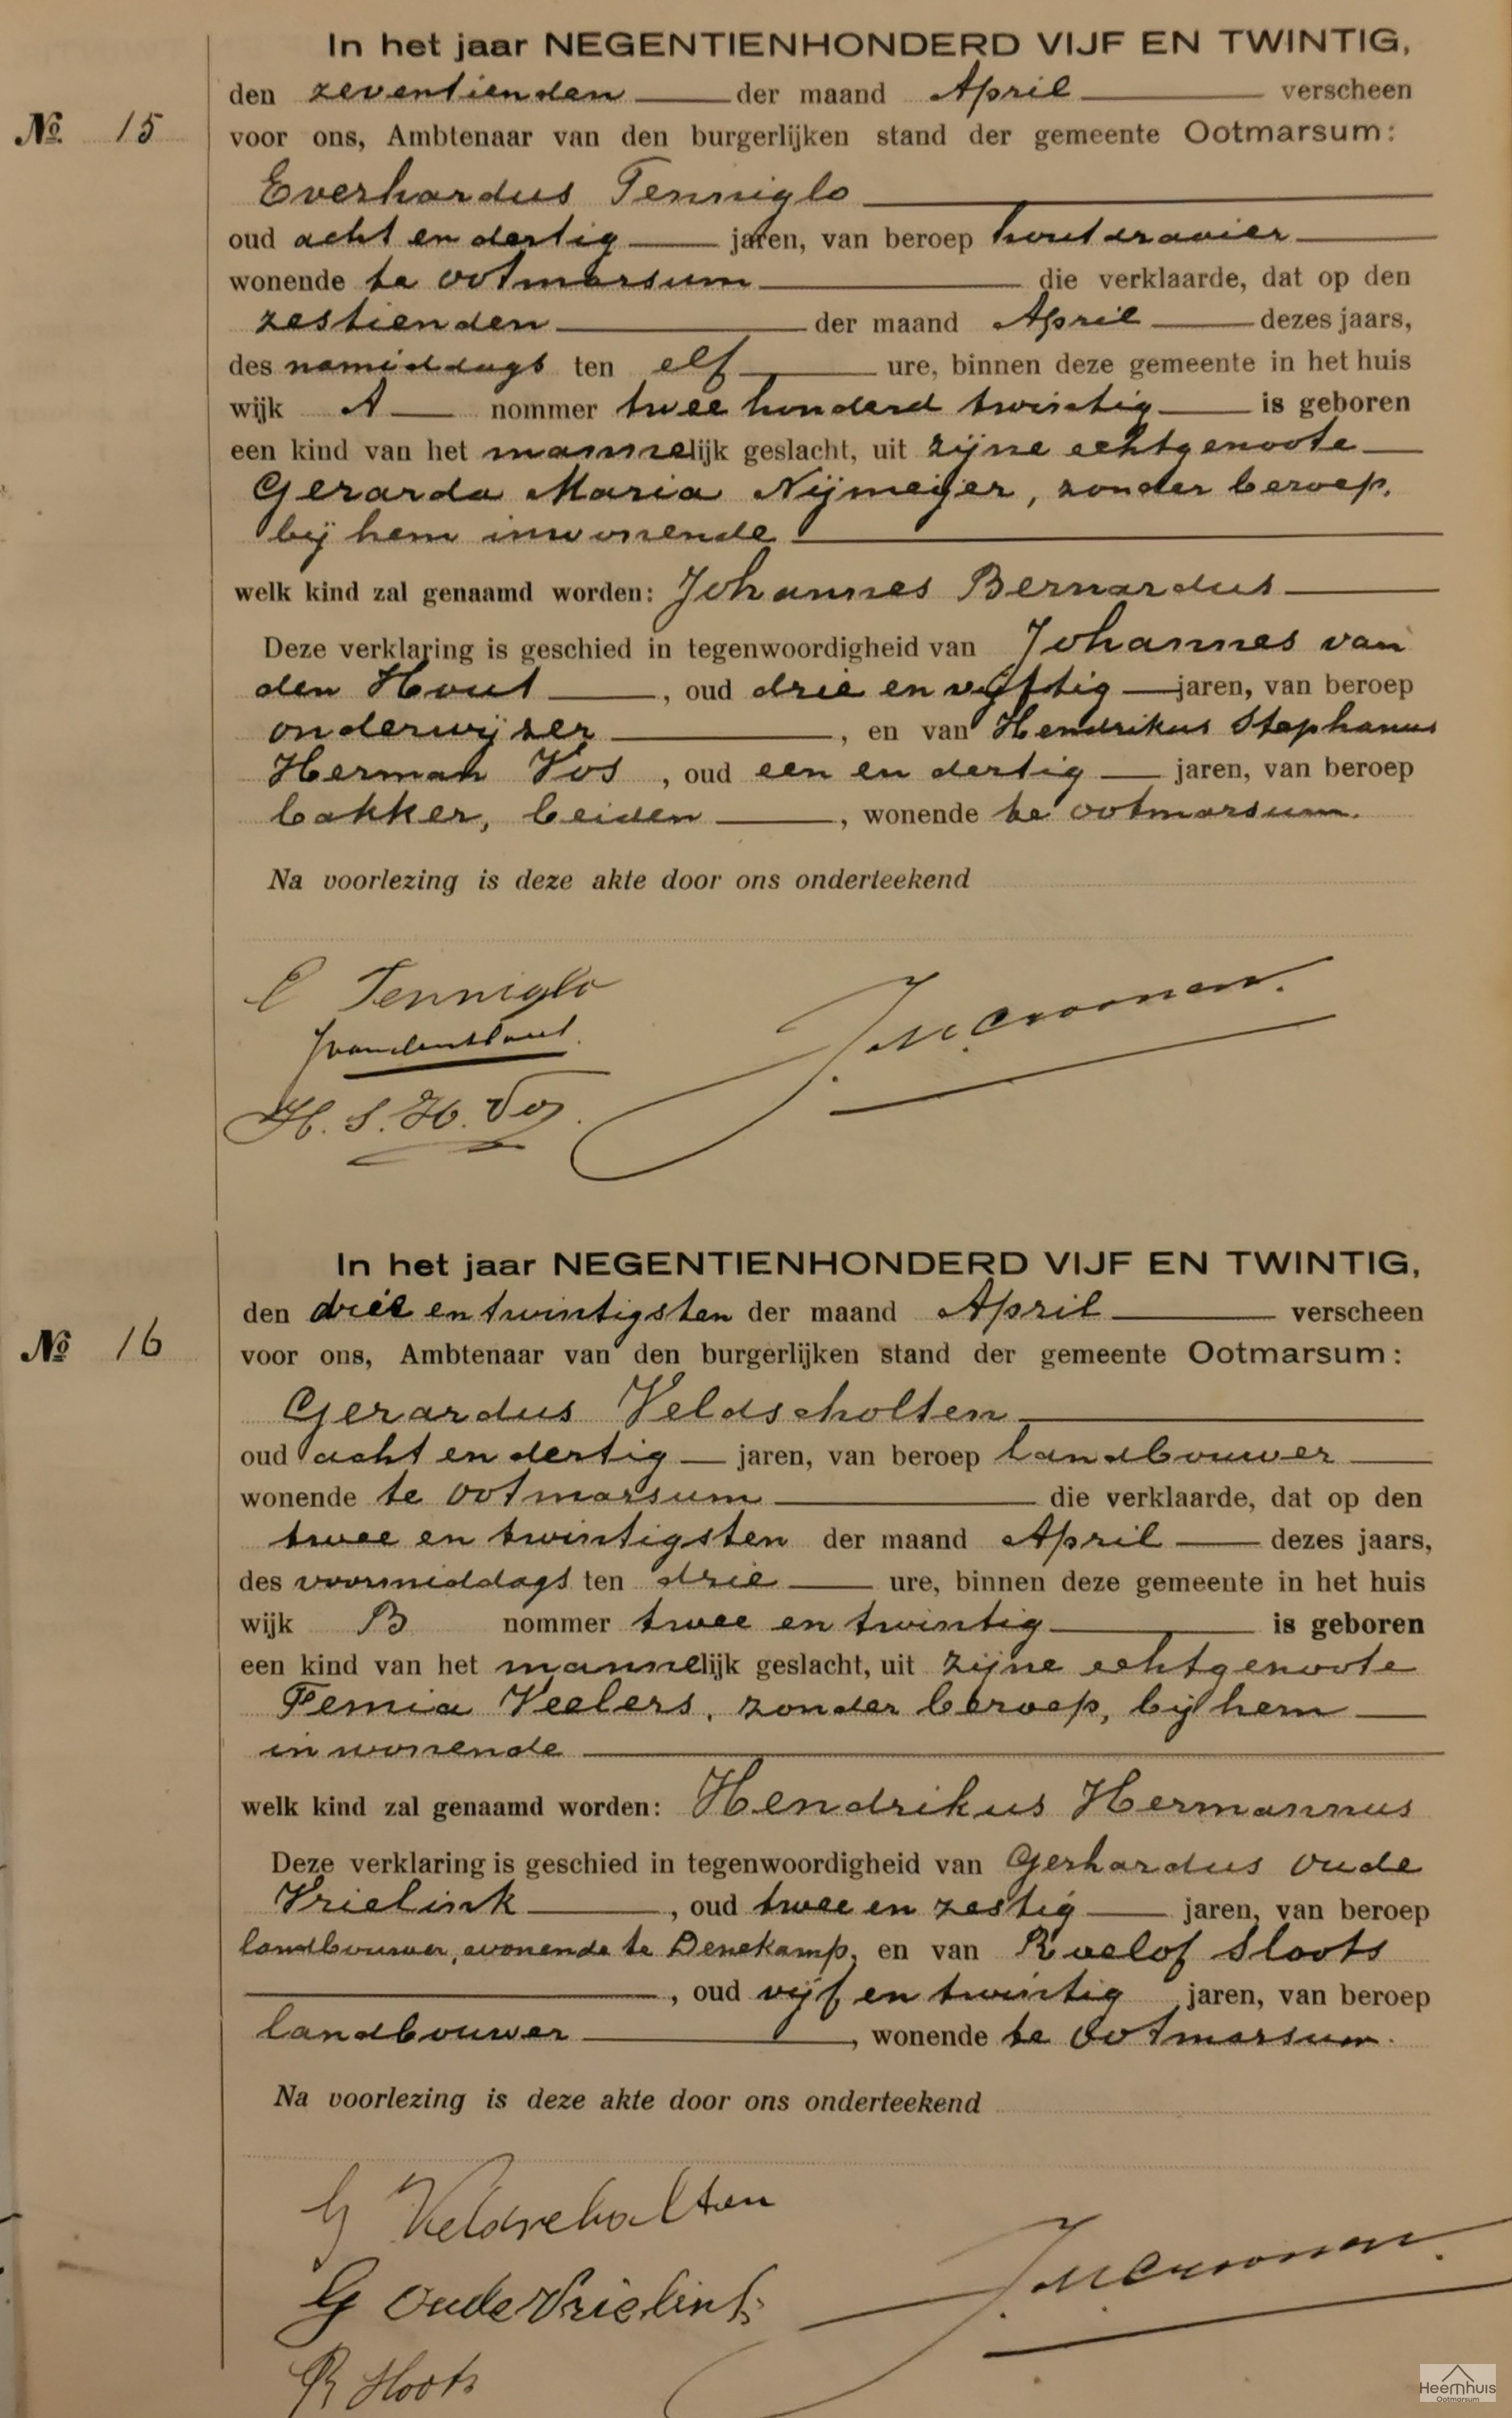 In het jaar NEGENTIENHONDERD VIJF EN TWINTIG,
den zeventienden der maand April verscheen
No. 15
voor ons, Ambtenaar van den burgerlijken stand der gemeente Ootmarsum:
Everhardus Tenniglo
oud acht en dertig jaren, van beroep houtdraaier
wonende te Ootmarsum die verklaarde, dat op den
zestienden der maand April dezes jaars,
des namiddags ten elf ure, binnen deze gemeente in het huis
wijk A nommer twee honderd twintig is geboren
een kind van het mannelijk geslacht, uit zijne echtgenoote
Gerarda Maria Nijmeijer, zonder beroep,
bij hem inwonende
welk kind zal genaamd worden: Johannes Bernardus
Deze verklaring is geschied in tegenwoordigheid van Johannes van
den Hout, oud drie en vijftig jaren, van beroep
onderwijzer, en van Hendrikus Stephanus
Herman Vos, oud een en dertig jaren, van beroep
bakker, beiden, wonende te Ootmarsum.
Na voorlezing is deze akte door ons onderteekend
E Tenniglo
JvandenHout.
H. S. H. Vos.
In het jaar NEGENTIENHONDERD VIJF EN TWINTIG,
den drie en twintigsten der maand April verscheen
No 16
voor ons, Ambtenaar van den burgerlijken stand der gemeente Ootmarsum:
Gerardus Veldscholten
oud acht en dertig jaren, van beroep landbouwer
wonende te Ootmarsum die verklaarde, dat op den
twee en twintigsten der maand April dezes jaars,
des voormiddags ten drie ure, binnen deze gemeente in het huis
wijk B nommer twee en twintig is geboren
een kind van het mannelijk geslacht, uit zijne echtgenoote
Femia Veelers, zonder beroep, bij hem
inwonende
welk kind zal genaamd worden: Hendrikus Hermannus
Deze verklaring is geschied in tegenwoordigheid van Gerhardus Oude
Vrielink, oud twee en zestig jaren, van beroep
landbouwer, wonende te Denekamp, en van Roelof Sloots
, oud vijf en twintig jaren, van beroep
landbouwer, wonende te Ootmarsum.
Na voorlezing is deze akte door ons onderteekend
G Veldscholten
G Oude Vrielink.
R Sloots
Heemhuis
Ootmarsum